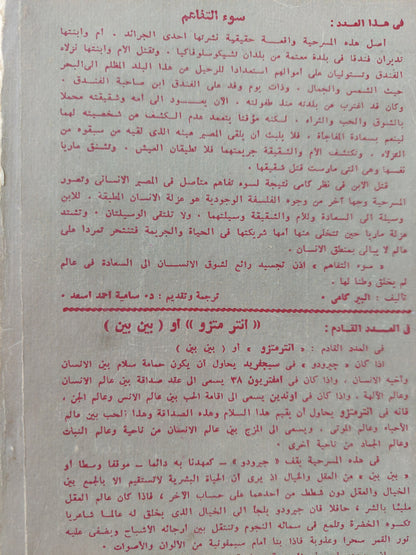 سوء التفاهم
فى هذا العدد :
أصل هذه المسرحية واقعة حقيقية نشرتها احدى الجرائد . أم وابنتها
تديران فندقا فى بلدة معتمة من بلدان تشيكوسلوفاكيا . وتقتل الأم وابنتها نزلاء
الفندق وتستوليان على أموالهم استعدادا للرحيل عن هذا البلد المظلم الى البحر
حيث الشمس والجمال . وذات يوم وفد على الفندق ابن صاحبة الفندق .
وكان قد اغترب عن بلدته منذ طفولته . الآن يعود الى أمه وشقيقته محملا
بالشوق والحب والثراء . لكنه مؤقتا يتعمد عدم الكشف عن شخصيته لهما
لينعم بسعادة المفاجأة . فلا يلبث أن يلقى المصير عينه الذى لقيه من سبقوه من
النزلاء . وتكتشف الأم والشقيقة جريمتهما فلا تطيقان العيش . وتشنق مارتا
نفسها وهى التى مارست قتل شقيقها .
قتل الابن فى نظر كامى نتيجة لسوء تفاهم متأصل فى المصير الانسانى وتصور
المسرحية وجها آخر من وجوه الفلسفة الوجودية هو عزلة الانسان المطبقة . للابن
وسيلة الى السعادة وللأم والشقيقة وسيلتهما . ولا تلتقى الوسيلتان . وتشتد
عزلة مارتا حين تتخلى عنها أمها شريكتها فى الحياة والجريمة فتنتحر تمردا على
عالم لا يبالى بمنطق الانسان .
« سوء التفاهم » اذن تجسيد رائع لشوق الانسان الى السعادة فى عالم
لم يخلق وطنا لها .
تأليف : ألبير كامى . ترجمة وتقديم : د. سامية أحمد أسعد .
فى العدد القادم : « انتر متزو » أو ( بين بين )
فى العدد القادم : « انترمتزو » أو ( بين بين )
اذا كان « جيرودو » فى سيجفريد يحاول أن يكون حمامة سلام بين الانسان
وأخيه الانسان . واذا كان فى أمفتريون ٣٨ يسعى الى عقد صداقة بين عالم الانسان
وعالم الآلهة . واذا كان فى أوندين يسعى الى اقامة الحب بين عالم الانس وعالم الجن .
فانه فى انترمتزو يحاول أن يقيم هذا السلام وهذه الصداقة وهذا الحب بين عالم
الأحياء وعالم الموتى . ويسعى الى المزج بين عالم الانسان من ناحية وعالم النبات
وعالم الجماد من ناحية أخرى .
فى هذه المسرحية يقف « جيرودو » — كعهدنا به دائما — موقفا وسطا أو
« بين بين » من العقل والخيال اذ يرى أن الحياة البشرية لا تستقيم الا بالجمع بين
الخيال والعقل دون شطط من أحدهما على حساب الآخر ، فاذا كان عالم العقل
مليئا بالشر ، حافلا كان جيرودو يلجأ الى الخيال الذى يخلق له عالما شاعريا
تكسوه الخضرة وتلمع فى سمائه النجوم وتتنقل بين أرجائه الأشباح ويضفى عليه
نور القمر سحرا وعذوبة فاذا بنا أمام سيمفونية من الألوان والأصوات .